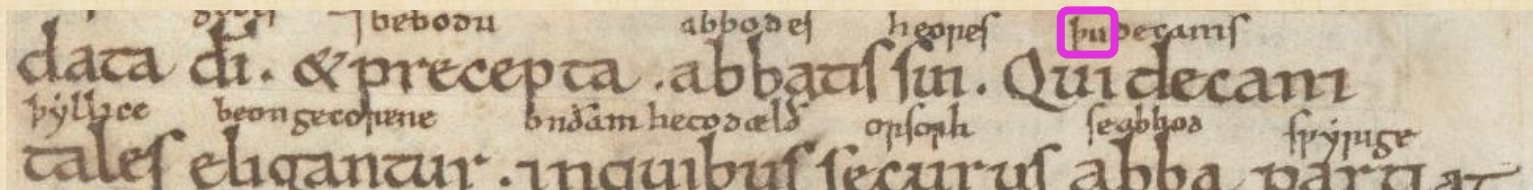 ⁊ bebodu abbodes heores þa decanis
data di. & precepta . abbatis sui. Qui decani
þyllice beon gecorene onðam he todælð orsorh se abbod
tales eligantur . inquibus securus abba partiat